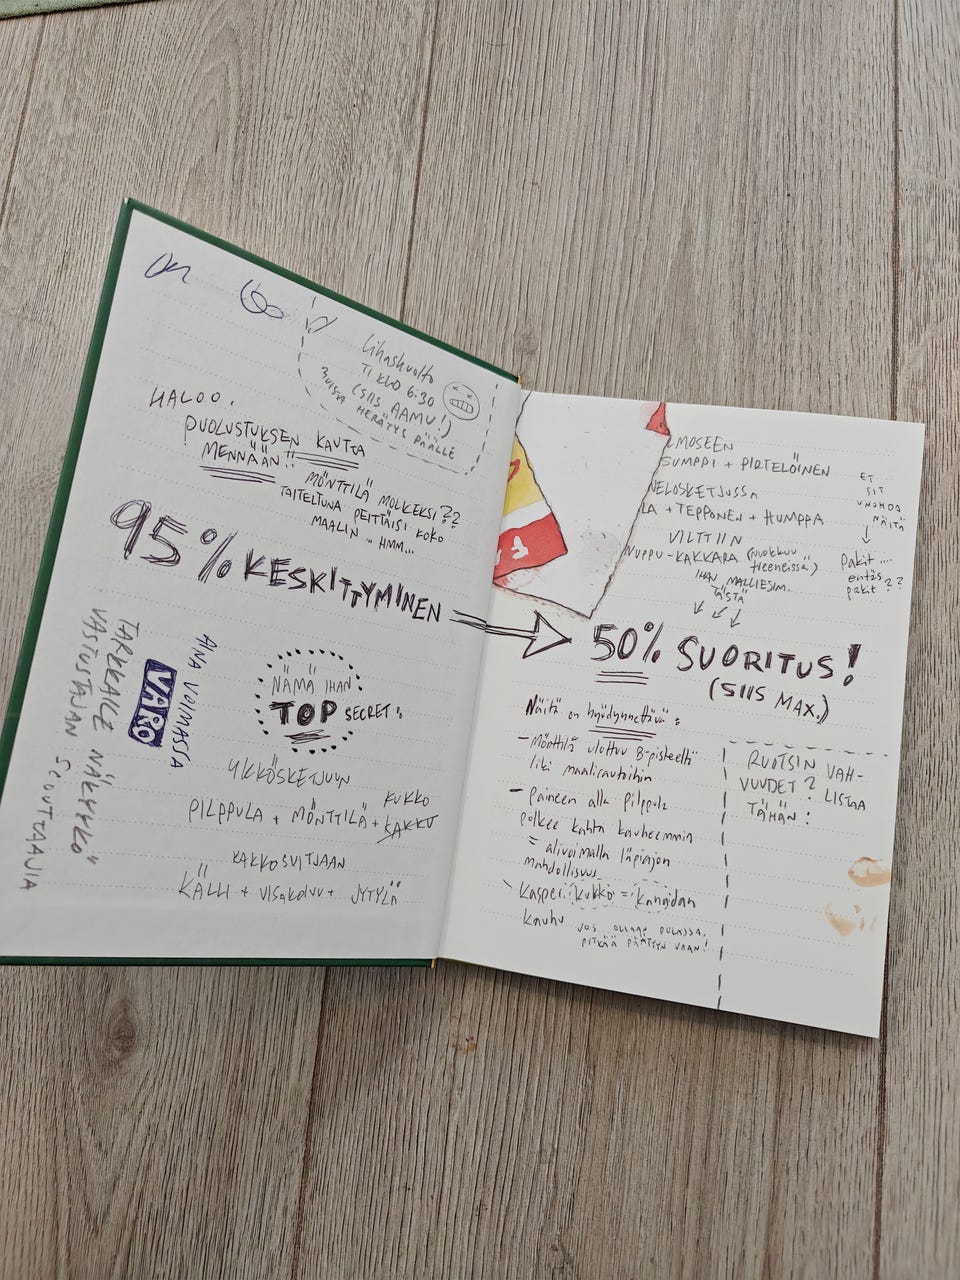 Lihashuolto
TI KLO 6:30
(SIIS AAMU!)
HERÄTYS PÄÄLLE
HALOO.
PUOLUSTUKSEN KAUTTA
MENNÄÄN!!
MÖNTTILÄ MOLKEKSI??
TAITELTUNA PEITTÄISI KOKO
MAALIN .. HMM...
95% KESKITTYMINEN
AINA VOIMASSA
VARO
TARKKAILE NÄKYYKÖ
VASTUSTAJAN SCOUTTAAJIA
NÄMÄ IHAN
TOP SECRET:
YKKÖSKETJUUN
KUKKO
PILPPULA + MÖNTTILÄ + KAKKU
KAKKOSVITJAAN
KÄLLI + VISAKOIVU + JYTYLÄ
LMOSEEN
SUMPPI + PIRTELÖINEN
NELOSKETJUSSA
LA + TEPPONEN + HUMPPA
VILTTIIN
NUPPU-KAKKARA (NUOKKUU
TREENEISSÄ)
IHAN MALLIESIM.
TÄSTÄ
ET
SIT
UNOHDA
NÄITÄ
Pakit....
entäs
pakit??
50% SUORITUS!
(SIIS MAX.)
Näitä on hyödynnettävä:
- Mönttilä ulottuu B-pisteeltä
liki maalirautoihin
- Paineen alla Pilppula
polkee kahta kauheemmin
= alivoimalla läpiajon
mahdollisuus
- Kasperi Kukko = Kangidan
kauhu
JOS OLLAAN PULASSA,
PITKÄÄ PÄÄTYYN VAAN!
RUOTSIN VAH-
VUUDET? LISTAA
TÄHÄN: